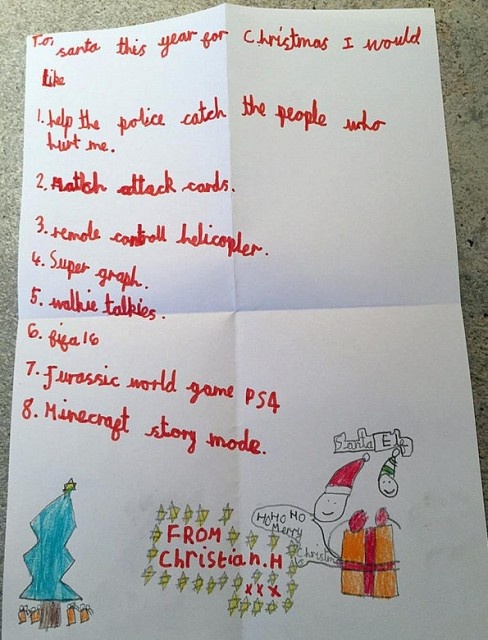 To, santa this year for Christmas I would
like
1. help the police catch the people who
hurt me.
2. Match attack cards.
3. remote controll helicopter.
4. Super graph.
5. walkie talkies.
6. fifa 16
7. Jurassic world game PS4
8. Minecraft story mode.
Santa Elf
HoHo Ho
Merry
Christmas
FROM
Christian.H
xxx